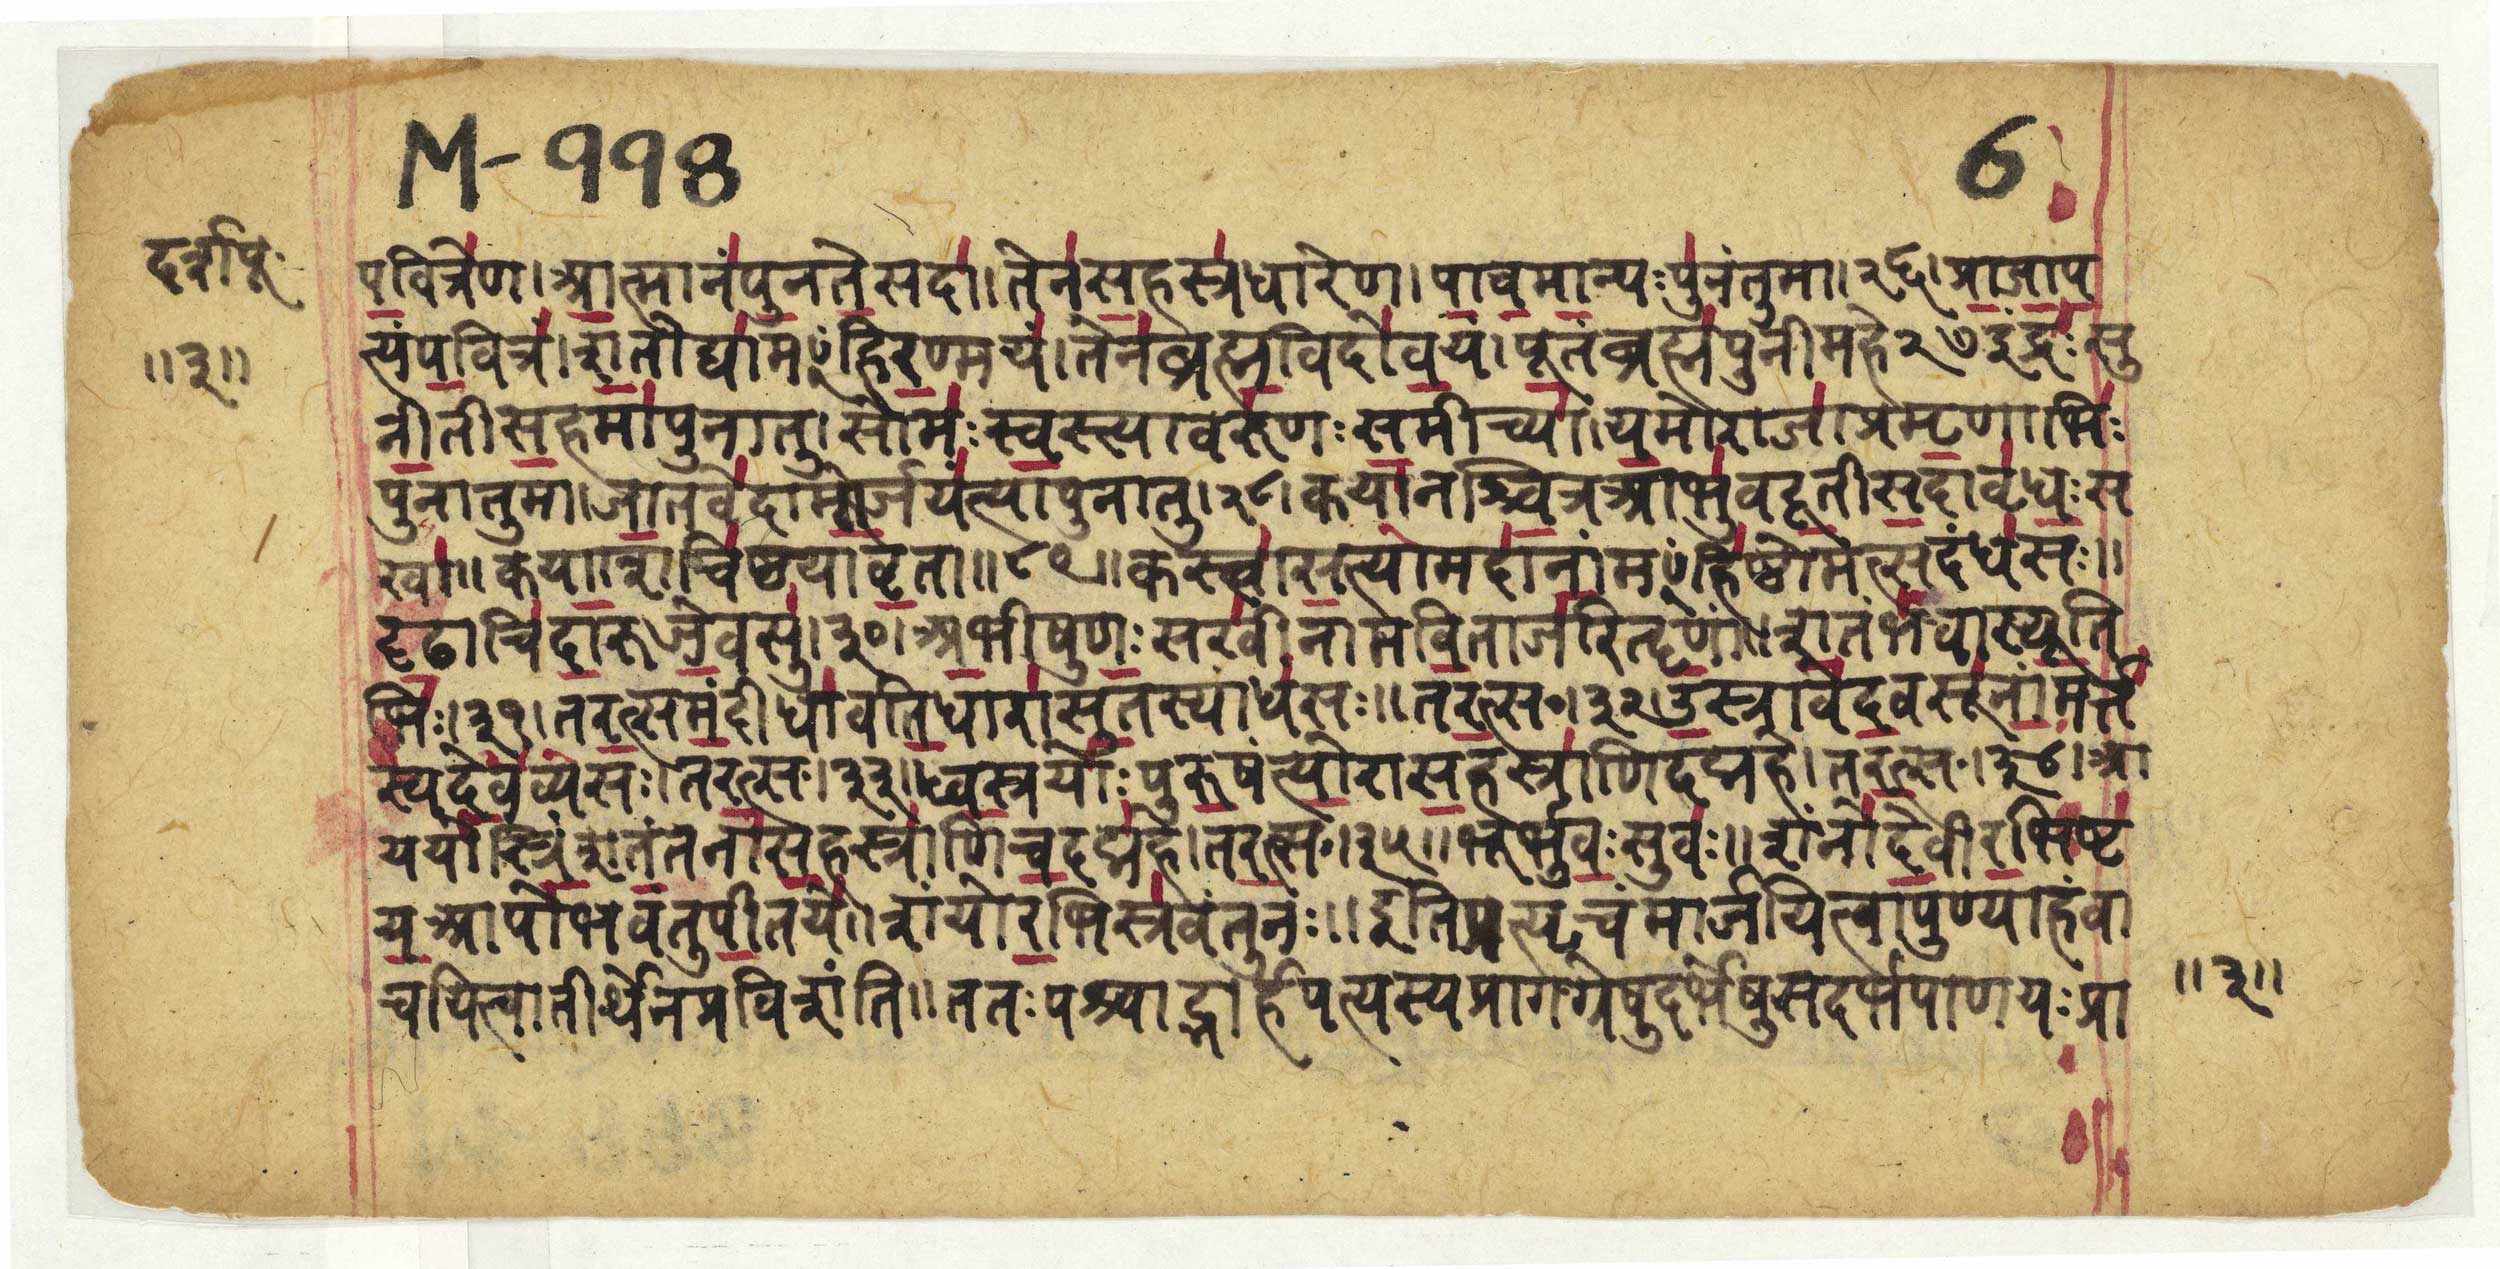 M-998
6
दर्वीपू॰
॥३॥
पवित्रेण।आत्मानंपुनतेसदा।तेनसहस्रधारेण।पावमान्यःपुनंतुमा।२६।प्राजाप
त्यंपवित्रं।शतोद्यामꣳहिरण्मयं।तेनब्रह्मविदोवयं।पूतंब्रह्मपुनीमहे२७इंद्रःसु
नीतीसहमापुनातु।सोमःस्वस्त्यावरुणःसमीच्या।यमोराजाप्रमृणाभिः
पुनातुमा।जातवेदामोर्जयंत्यापुनातु।२८।कयानश्चित्रआभुवदूतीसदावृधःस
खा॥कयाशचिष्ठयावृता॥२९॥कस्त्वासत्योमदानांमꣳहिष्ठोमत्सदंधसः॥
दृढाचिदारुजेवसु।३०।अभीषुणःसखीनामविताजरितॄणां।शतंभवास्यूति
भिः।३१।तरत्समंदीधावतिधारासुतस्यांधसः॥तरत्स॰।३२।उस्रावेदवसूनांमर्त्त
स्यदेवव्यसः।तरत्स॰।३३॥ध्वस्त्रयोःपुरुषंत्योरासहस्राणिदद्महे।तरत्स॰।३४।आ
ययोस्त्रिंशतंतनासहस्राणिचदद्महे।तरत्स॰।३५॥भूर्भुवःसुवः॥शंनोदेवीरभिष्ट
यआपोभवंतुपीतये।शंयोरभिस्रवंतुनः॥इतिप्रत्यृचंमार्जयित्वापुण्याहंवा
चयित्वातीर्थेनप्रविशंति॥ततःपश्चाद्गार्हपत्यस्यप्रागग्रेषुदर्भेषुसदर्भपाणयःप्रा
॥३॥